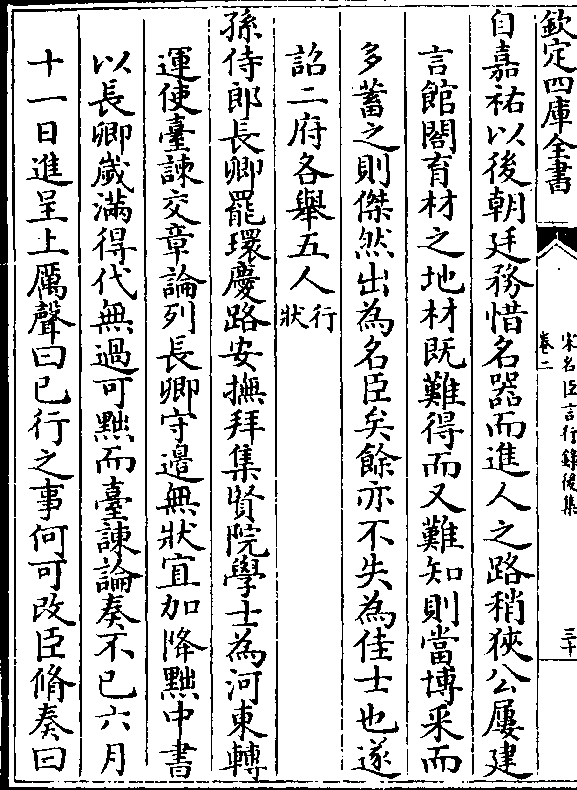 欽定四庫全書
宋名臣言行錄後集
卷二
三十
自嘉祐以後朝廷務惜名器而進人之路稍狹公屢建
言館閣育材之地材既難得而又難知則當博采而
多蓄之則傑然出為名臣矣餘亦不失為佳士也遂
詔二府各舉五人行狀
孫侍郎長卿罷環慶路安撫拜集賢院學士為河東轉
運使臺諫交章論列長卿守邊無狀宜加降黜中書
以長卿歲滿得代無過可黜而臺諫論奏不已六月
十一日進呈上厲聲曰已行之事何可改臣脩奏曰